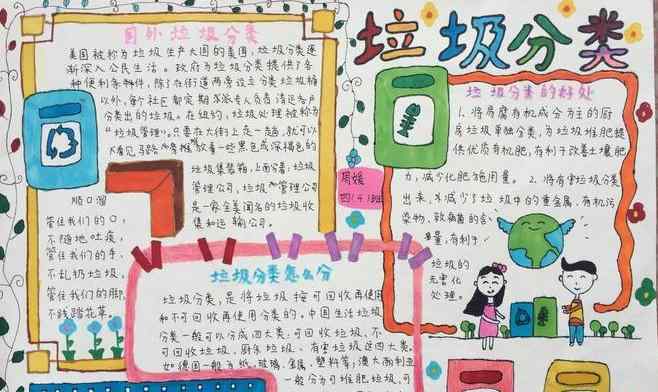 垃圾分类
国外垃圾分类
美国被称为垃圾生产大国的美国，垃圾分类逐
渐深入公民生活。政府为垃圾分类提供了各
种便利条件，除了在街道两旁设立分类垃圾桶
以外，每个社区都定期派专人负责清运各户
分类出的垃圾。在纽约，垃圾处理被称为
"垃圾管理"。只要在大街上走一走，就可以
看见马路旁堆放着一些黑色或深褐色的
垃圾集装箱，上面分着：垃圾
管理公司，垃圾管理公司
是一家全美闻名的垃圾收
集和运输公司。
顺口溜
管住我们的口，
不随地吐痰，
管住我们的手，
不乱扔垃圾，
管住我们的脚，
不践踏花草。
垃圾分类的好处
1、将易腐有机成分为主的厨
房垃圾单独分类，为垃圾堆肥提
供优质有机肥，有利于改善土壤肥
力，减少化肥施用量。2、将有害垃圾分类
出来，减少了垃圾中的重金属，有机污
染物，致病菌的含
量，有利于
垃圾的
无害化
处理。
周媛
四(4)班
垃圾分类怎么分
垃圾分类，是将垃圾按可回收再使用
和不可回收再使用分类的。中国生活垃圾
分类一般可以分成四大类：可回收垃圾、不
可回收垃圾、厨余垃圾、有害垃圾这四大类。
如德国一般为纸、玻璃、金属、塑料等；澳大利亚
一般分为可堆肥垃圾，可